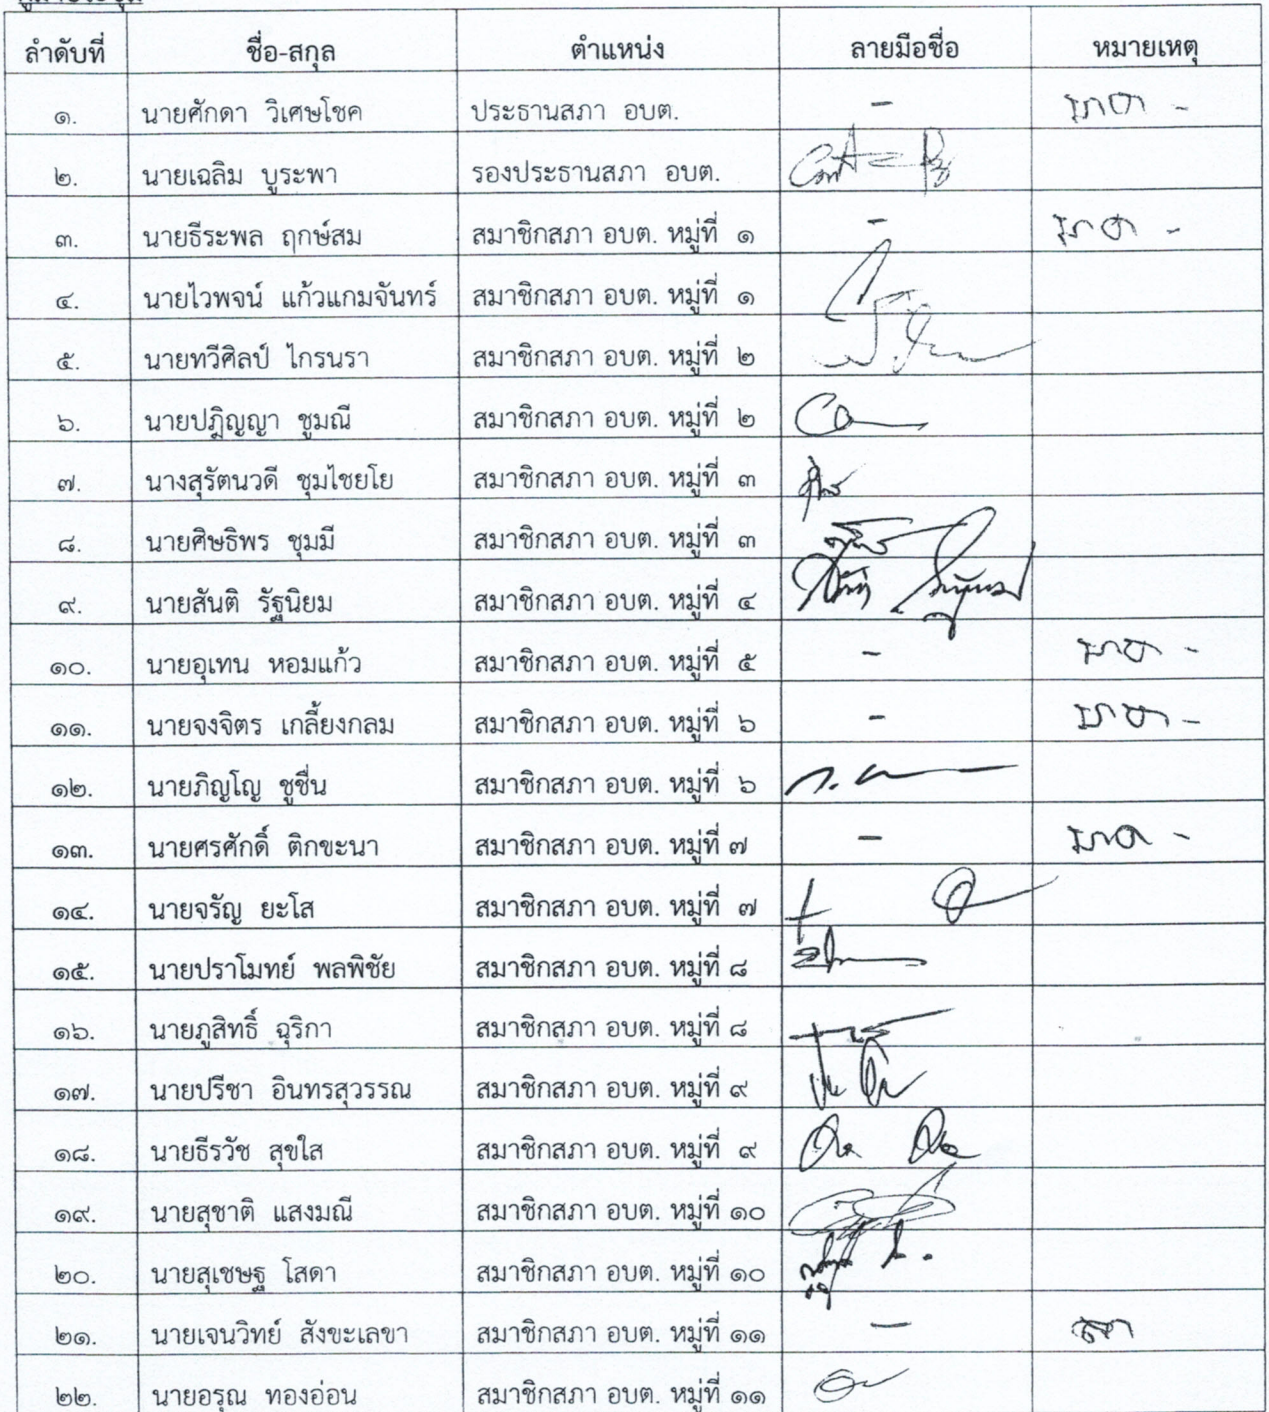 ผู้มาประชุม
ลำดับที่ ชื่อ-สกุล ตำแหน่ง ลายมือชื่อ หมายเหตุ
๑. นายศักดา วิเศษโชค ประธานสภา อบต. - ขาด -
๒. นายเฉลิม บูระพา รองประธานสภา อบต.
๓. นายธีระพล ฤกษ์สม สมาชิกสภา อบต. หมู่ที่ ๑ - ขาด -
๔. นายไวพจน์ แก้วแกมจันทร์ สมาชิกสภา อบต. หมู่ที่ ๑
๕. นายทวีศิลป์ ไกรนรา สมาชิกสภา อบต. หมู่ที่ ๒
๖. นายปฎิญญา ชูมณี สมาชิกสภา อบต. หมู่ที่ ๒
๗. นางสุรัตนวดี ชุมไชยโย สมาชิกสภา อบต. หมู่ที่ ๓
๘. นายศิษธิพร ชุมมี สมาชิกสภา อบต. หมู่ที่ ๓
๙. นายสันติ รัฐนิยม สมาชิกสภา อบต. หมู่ที่ ๔
๑๐. นายอุเทน หอมแก้ว สมาชิกสภา อบต. หมู่ที่ ๕ - ขาด -
๑๑. นายจงจิตร เกลี้ยงกลม สมาชิกสภา อบต. หมู่ที่ ๖ - ขาด -
๑๒. นายภิญโญ ชูชื่น สมาชิกสภา อบต. หมู่ที่ ๖
๑๓. นายศรศักดิ์ ติกขะนา สมาชิกสภา อบต. หมู่ที่ ๗ - ขาด -
๑๔. นายจรัญ ยะโส สมาชิกสภา อบต. หมู่ที่ ๗
๑๕. นายปราโมทย์ พลพิชัย สมาชิกสภา อบต. หมู่ที่ ๘
๑๖. นายภูสิทธิ์ ฉุริกา สมาชิกสภา อบต. หมู่ที่ ๘
๑๗. นายปรีชา อินทรสุวรรณ สมาชิกสภา อบต. หมู่ที่ ๙
๑๘. นายธีรวัช สุขใส สมาชิกสภา อบต. หมู่ที่ ๙
๑๙. นายสุชาติ แสงมณี สมาชิกสภา อบต. หมู่ที่ ๑๐
๒๐. นายสุเชษฐ โสดา สมาชิกสภา อบต. หมู่ที่ ๑๐
๒๑. นายเจนวิทย์ สังขะเลขา สมาชิกสภา อบต. หมู่ที่ ๑๑ - ลา
๒๒. นายอรุณ ทองอ่อน สมาชิกสภา อบต. หมู่ที่ ๑๑